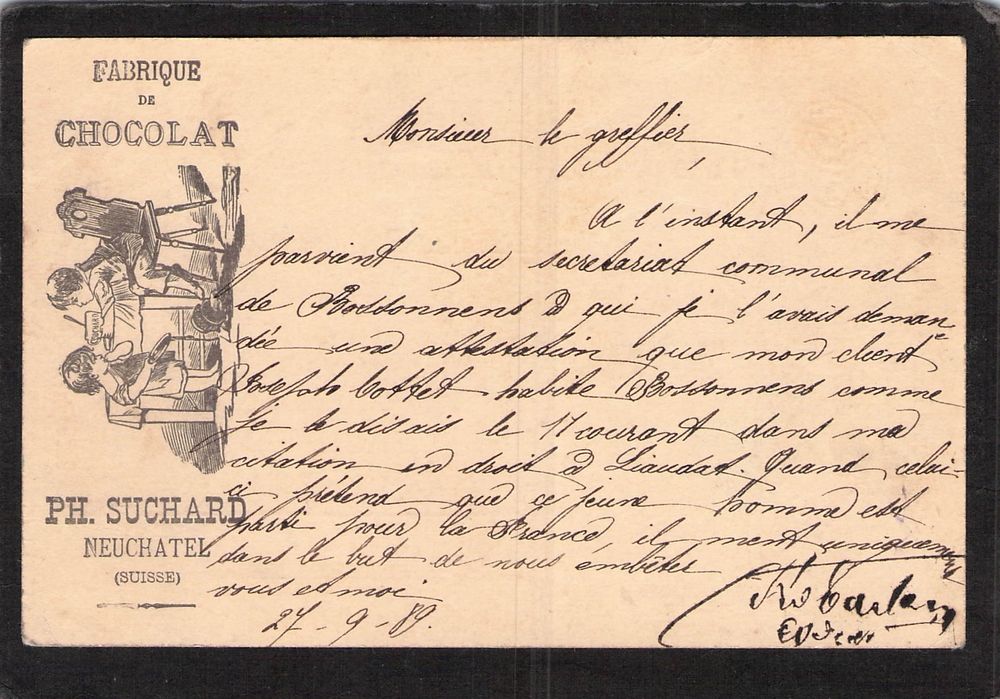 FABRIQUE
DE
CHOCOLAT
SUCHARD
PH. SUCHARD
NEUCHATEL
(SUISSE)
Monsieur le greffier,
A l'instant, il me
parvient du secretariat communal
de Bossonnens à qui je l'avais deman
dée une attestation que mon client
Joseph Cottet habite Bossonnens comme
je le disais le 17 courant dans ma
citation en droit à Liaudat. Quand celui-
ci prétend que ce jeune homme est
parti pour la France, il ment uniquement
dans le but de nous embêter
vous et moi
27-9-89.